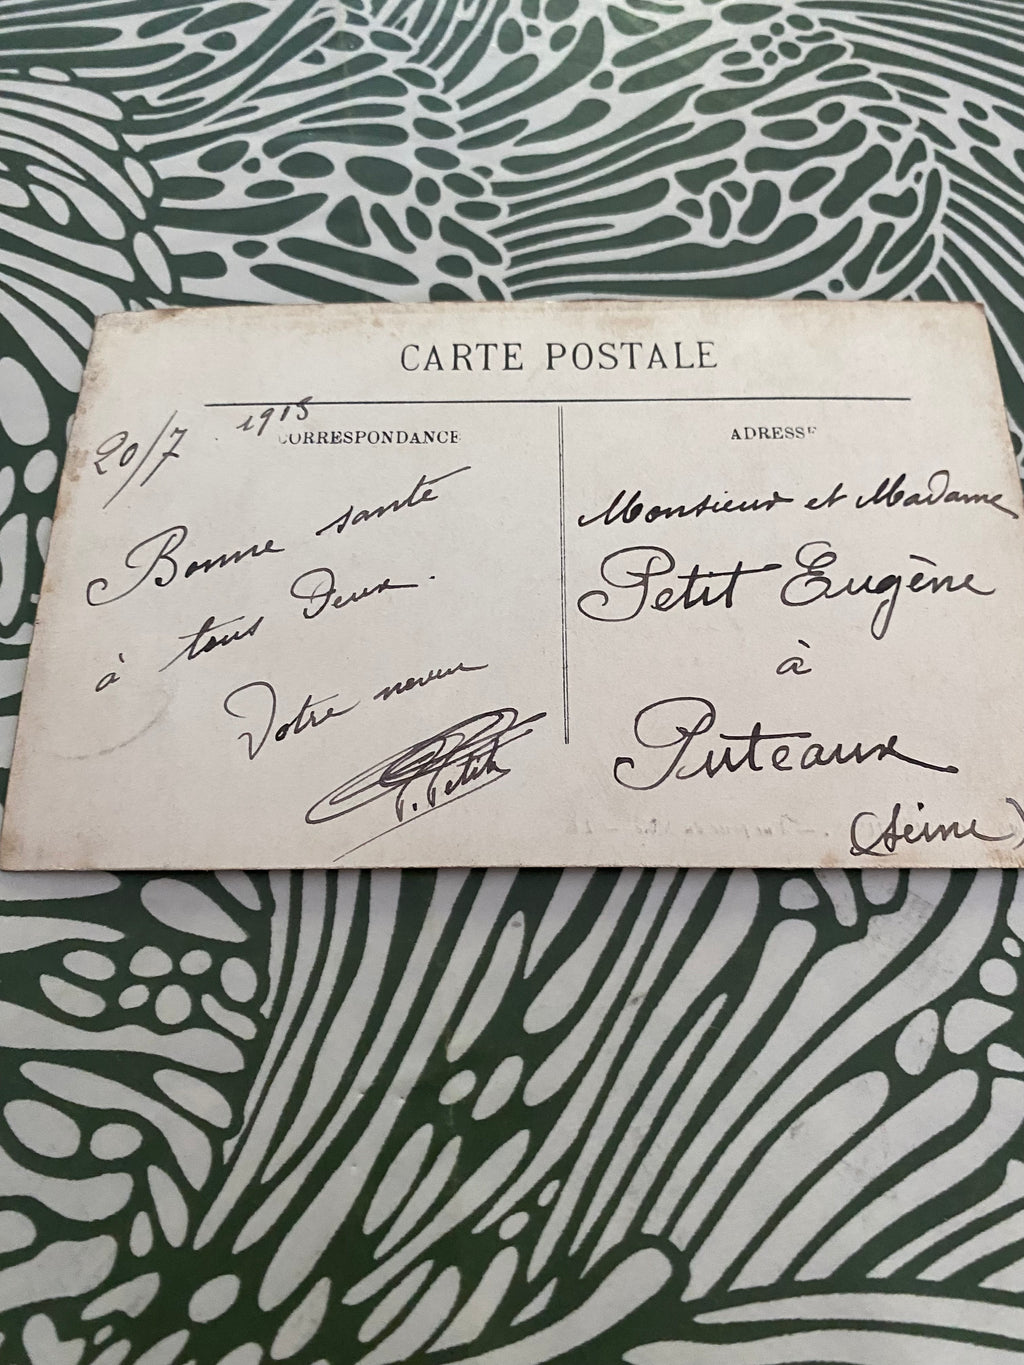 CARTE POSTALE
20/7 1915
CORRESPONDANCE
Bonne santé
à tous Deux.
Votre neveu
P. Petit
ADRESSE
Monsieur et Madame
Petit Eugène
à
Puteaux
(Seine)